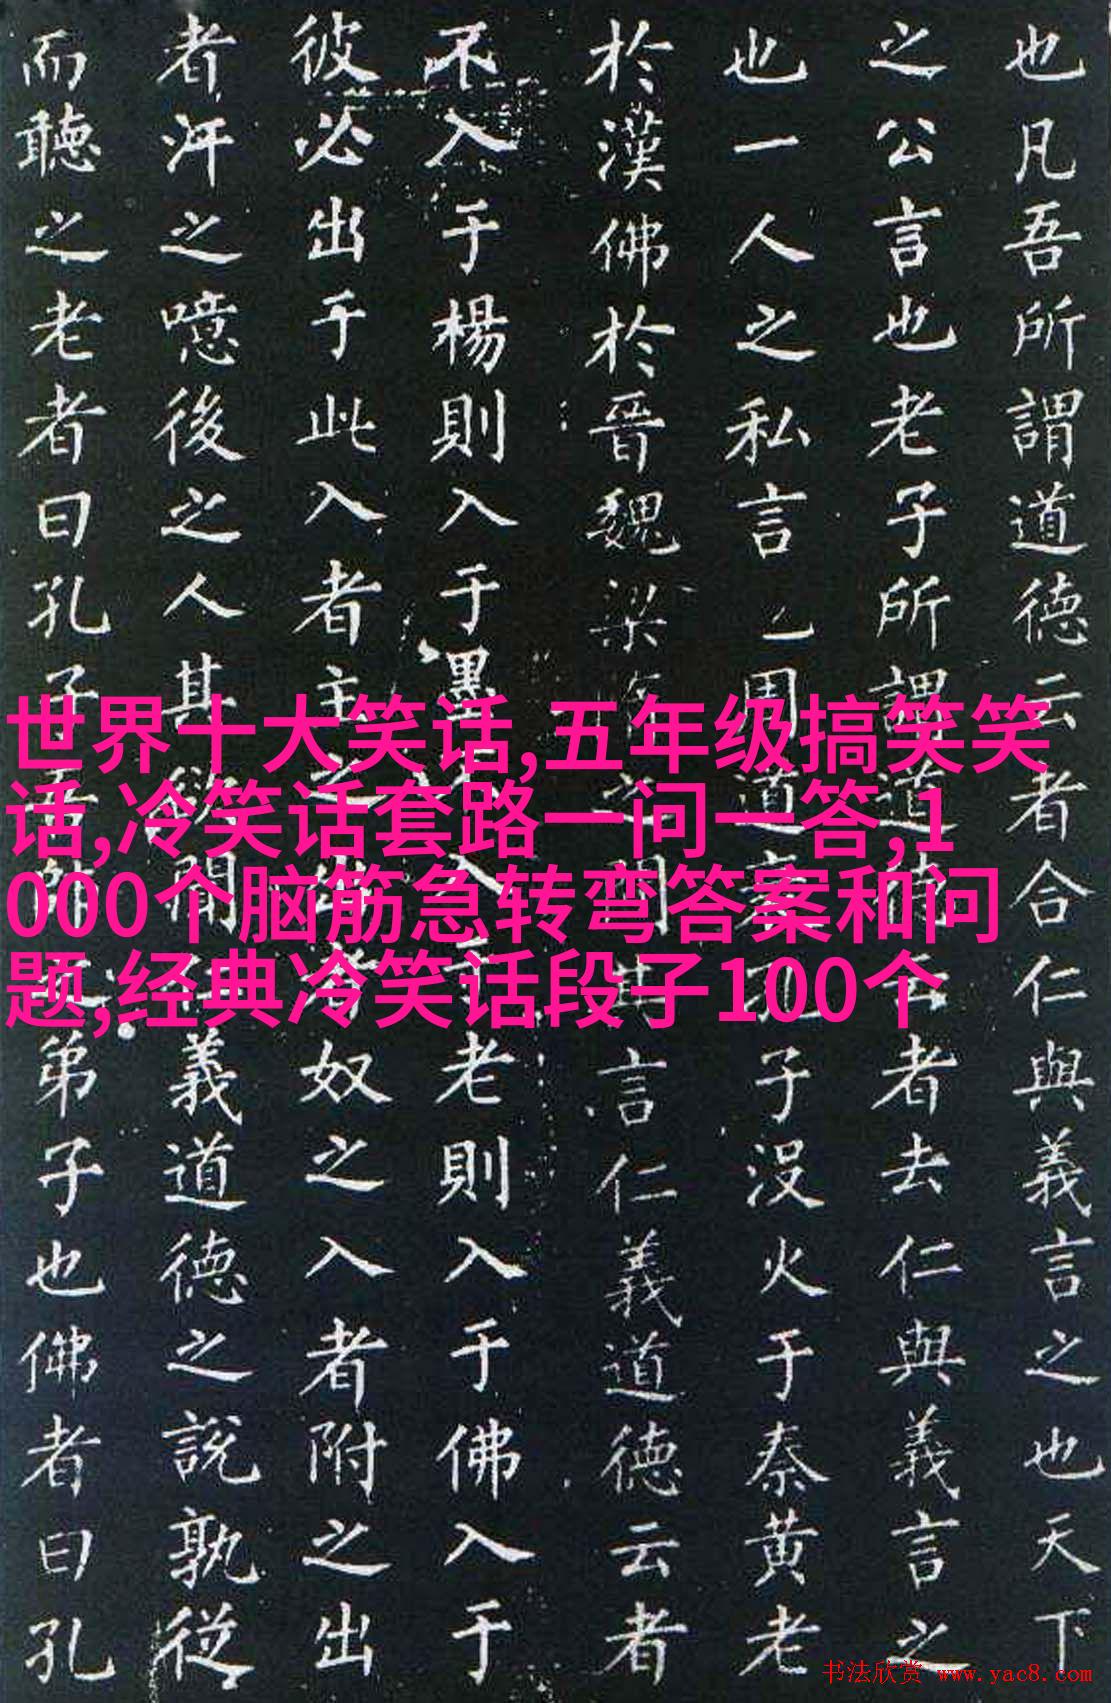 也凡吾所謂道德云者合仁與義言之也天下
之公言也老子所謂道云者去仁與義言之
也一人之私言周道子没火于秦黄老
於漢佛於晉魏梁間言仁義道德云者
不入于楊則入于墨入老則入于佛入于
彼必出于此入者主之奴之入者附之出
者汙之噫後之人其欲聞義道德之說孰從
而聽之老者曰孔子吾弟子也佛者曰孔
世界十大笑话,五年级搞笑笑
话,冷笑话套路一问一答,1
000个脑筋急转弯答案和问
题,经典冷笑话段子100个
书法欣赏 www.yac8.com